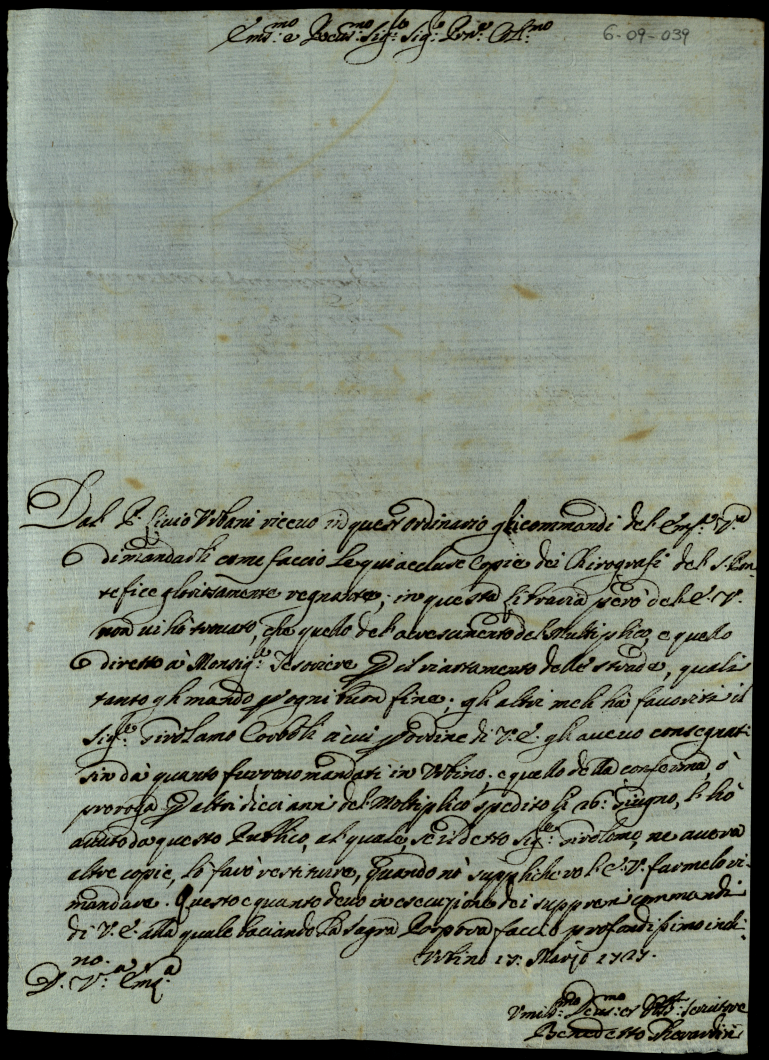 Em.mo e Rev.mo Sig.re Sig.re Pron. Col.mo
6-09-039
Dal P. Livio Urbani ricevo in quest'ordinario gli commandi dell' Em.a V.a
di mandarli come faccio le qui accluse copie dei Chirografi del S. Pon-
tefice gloriosamente regnante; in questa libraria però dell' E. V.
non vi hò trovato, che quello dell' accrescimento del Multiplico, e quello
diretto à Monsig.re Tesoriere p il riattamento delle strade, quali
tanto gli mando p ogni buon fine; gli altri me li hà favoriti il
Sig.re Girolamo Corboli à cui p ordine di V. E. gli avevo consegnati
sin da quanto furreno mandati in Urbino; e quello della conferma, ò
proroga p altri dieci anni del Moltiplico spedito li 26: Giugno, l' hò
avuto da questo Publico, al quale, se il detto Sig.re Girolomo, ne averà
altre copie, lo farò restituire, quando nò supplicherò l' E. V. farmelo ri-
mandare. Questo è quanto devo in esecuzione dei suppremi commandi
di V. E. alla quale baciando la Sagra Porpora faccio profondissimo inchi-
no.
Urbino 17: Marzo 1727.
D. V.a Em.a
Umil.mo Dev.mo et Obb. servitore
Benedetto Gherardini